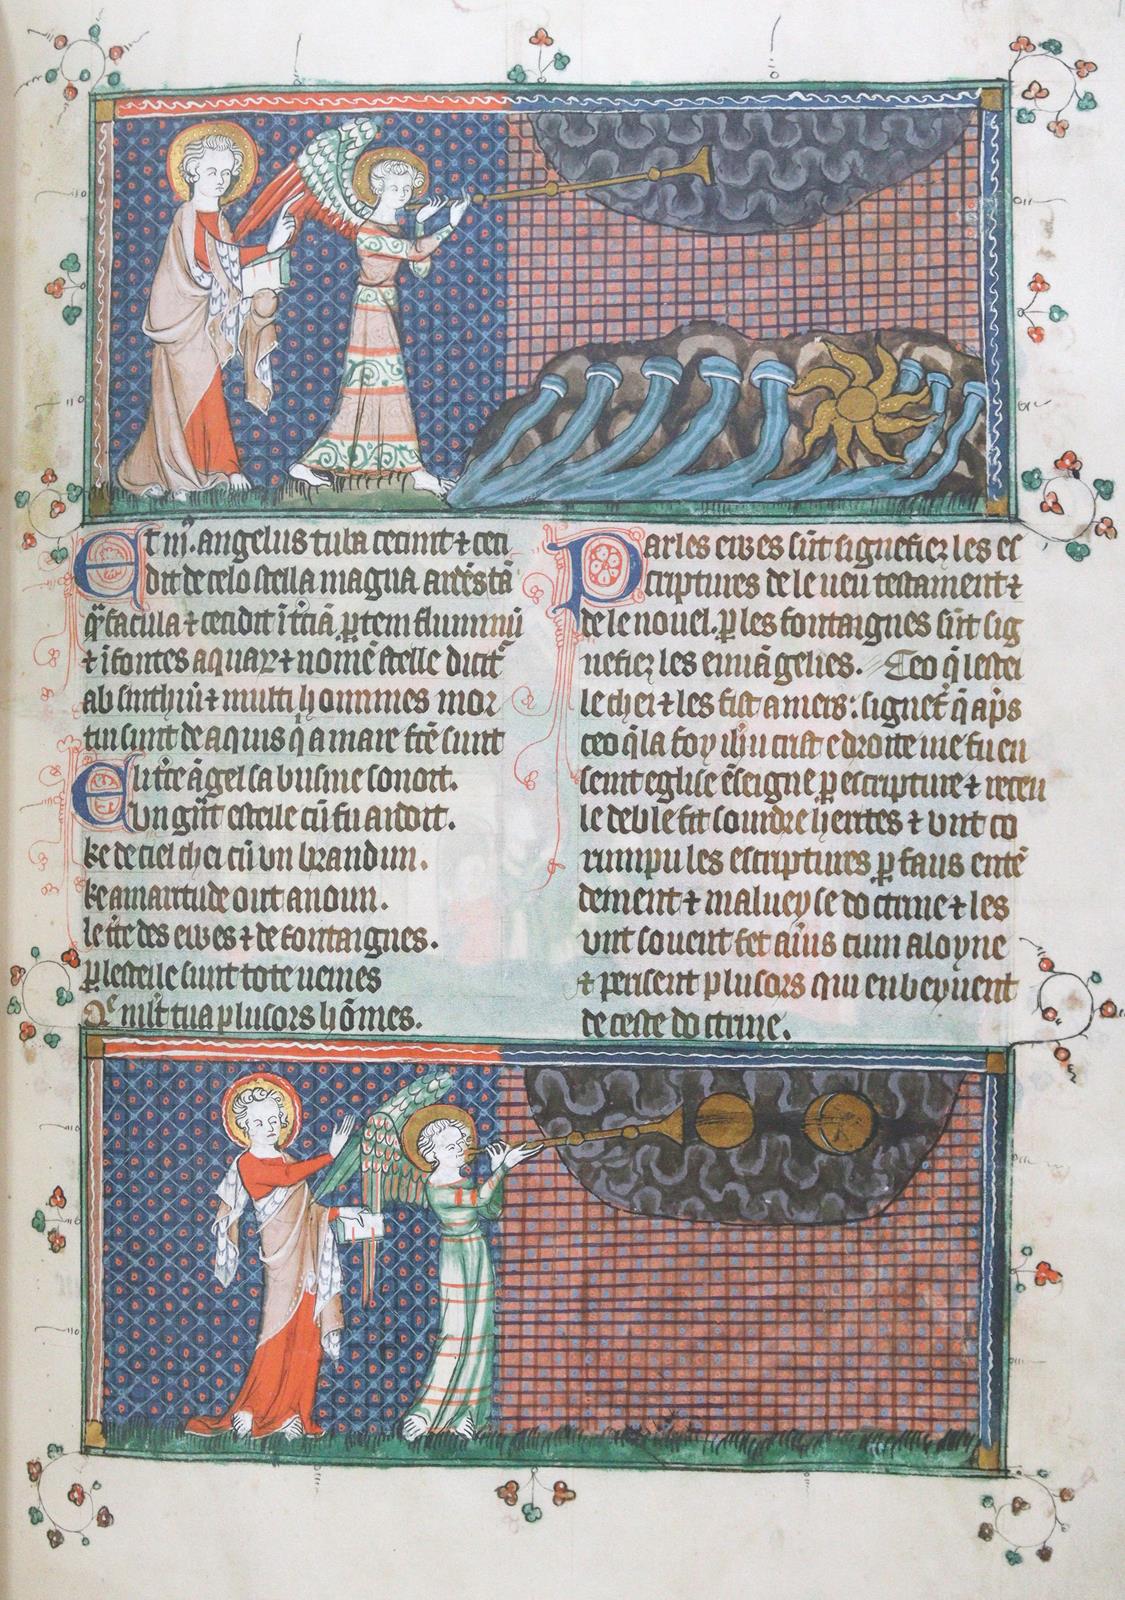 Et iij. angelus tuba cecinit ⁊ ceci
dit de celo stella magna ardēs tā
q̄ facula ⁊ cecidit ī t'ciā ꝑtem fluminū
⁊ ī fontes aquaꝝ ⁊ nomē stelle dicit'
absinthiū ⁊ multi hommes mor
tui sunt de aquis q̄ amare fc̄e sunt
Li t'rce āgel sa busine sonoit.
Un gūt esteile cū fu ardoit.
ke de ciel chei cū un brandun.
ke amaritude out a noun.
le t'ce des ewes ⁊ de fontaignes.
ꝑ lesteile sunt tote ueines
plusors hōmes.
Par les ewes sūt signefiez les es
criptures de le ueu testament ⁊
de le nouel. ꝑ les fontaignes sūt sig
nefiez les euuāgelies. Ceo q̄ lestei
le chei ⁊ les fist amers: signef' q̄ ap̄s
ceo q̄ la foy ihu crist e droite uie fu en
seint eglise ēseigne ꝑ escripture ⁊ receu
le deble fit sourdre herites ⁊ unt co
rumpu les escriptures ꝑ faus entē
dement ⁊ maluey se doctrine ⁊ les
unt souent fet am̄s cum aloyne
⁊ perisent plusors qui enbeyuent
de ceste doctrine.